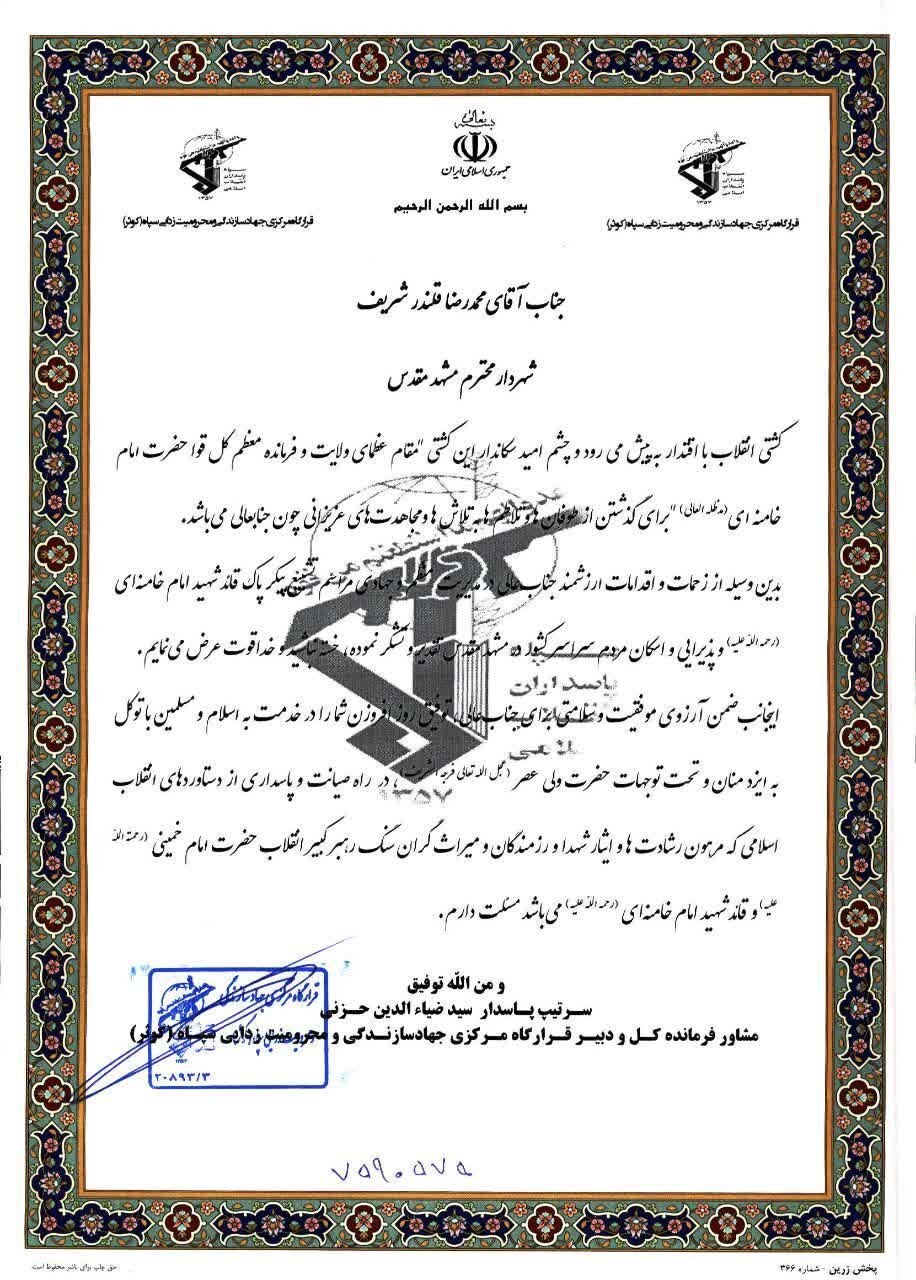 بسمه تعالی
جمهوری اسلامی ایران
بسم الله الرحمن الرحیم
سپاه
پاسداران
انقلاب
اسلامی
۱۳۵۷
قرارگاه مرکزی جهادسازندگی و محرومیت زدایی سپاه (کوثر)
سپاه
پاسداران
انقلاب
اسلامی
۱۳۵۷
قرارگاه مرکزی جهادسازندگی و محرومیت زدایی سپاه (کوثر)
جناب آقای محمدرضا قلندر شریف
شهردار محترم مشهد مقدس
کشتی انقلاب با اقتدار به پیش می رود و چشم امید سکاندار این کشتی "مقام عظمای ولایت و فرمانده معظم کل قوا حضرت امام
خامنه ای (مدظله العالی) "برای گذشتن از طوفان ها و تلاطم ها به تلاش ها و مجاهدت‌های عزیزانی چون جنابعالی می‌باشد.
بدین وسیله از زحمات و اقدامات ارزشمند جناب‌عالی در مدیریت منظم و جهادی مراسم تشییع پیکر پاک قائد شهید امام خامنه‌ای
(رحمه الله علیه) و پذیرایی و اسکان مردم سراسر کشور در مشهد مقدس تقدیر و تشکر نموده، خسته نباشید و خداقوت عرض می‌نمایم.
اینجانب ضمن آرزوی موفقیت و سلامتی برای جناب‌عالی، توفیق روز افزون شما را در خدمت به اسلام و مسلمین با توکل
به ایزد منان و تحت توجهات حضرت ولی عصر (عجل الله تعالی فرجه الشریف)، در راه صیانت و پاسداری از دستاوردهای انقلاب
اسلامی که مرهون رشادت ها و ایثار شهدا و رزمندگان و میراث گران سنگ رهبر کبیر انقلاب حضرت امام خمینی (رحمة الله
علیه) و قائد شهید امام خامنه‌ای (رحمه الله علیه) می‌باشد مسئلت دارم.
پاسداران
۱۳۵۷
و من الله توفیق
سرتیپ پاسدار سید ضیاء الدین حزنی
مشاور فرمانده کل و دبیر قرارگاه مرکزی جهادسازندگی و محرومیت زدایی سپاه (کوثر)
قرارگاه مرکزی جهادسازندگی
۲۰۸۹۳/۳
۷۵۹۰۵۷۵
پخش زرین - شماره ۳۶۶
حق چاپ برای ناشر محفوظ است